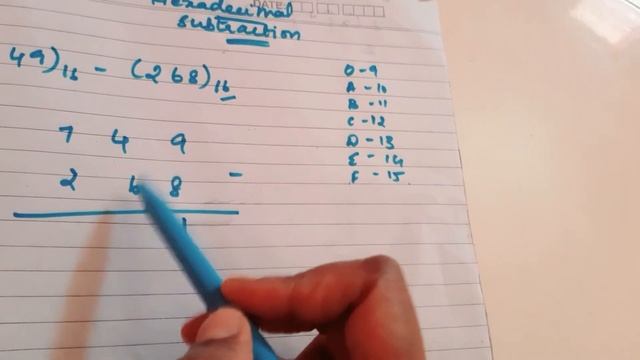 Hexadecimal DATE
subtraction
49)16 - (268)16
0-9
A-10
B-11
C-12
D-13
E-14
F-15
7 4 9
2 6 8 -
1